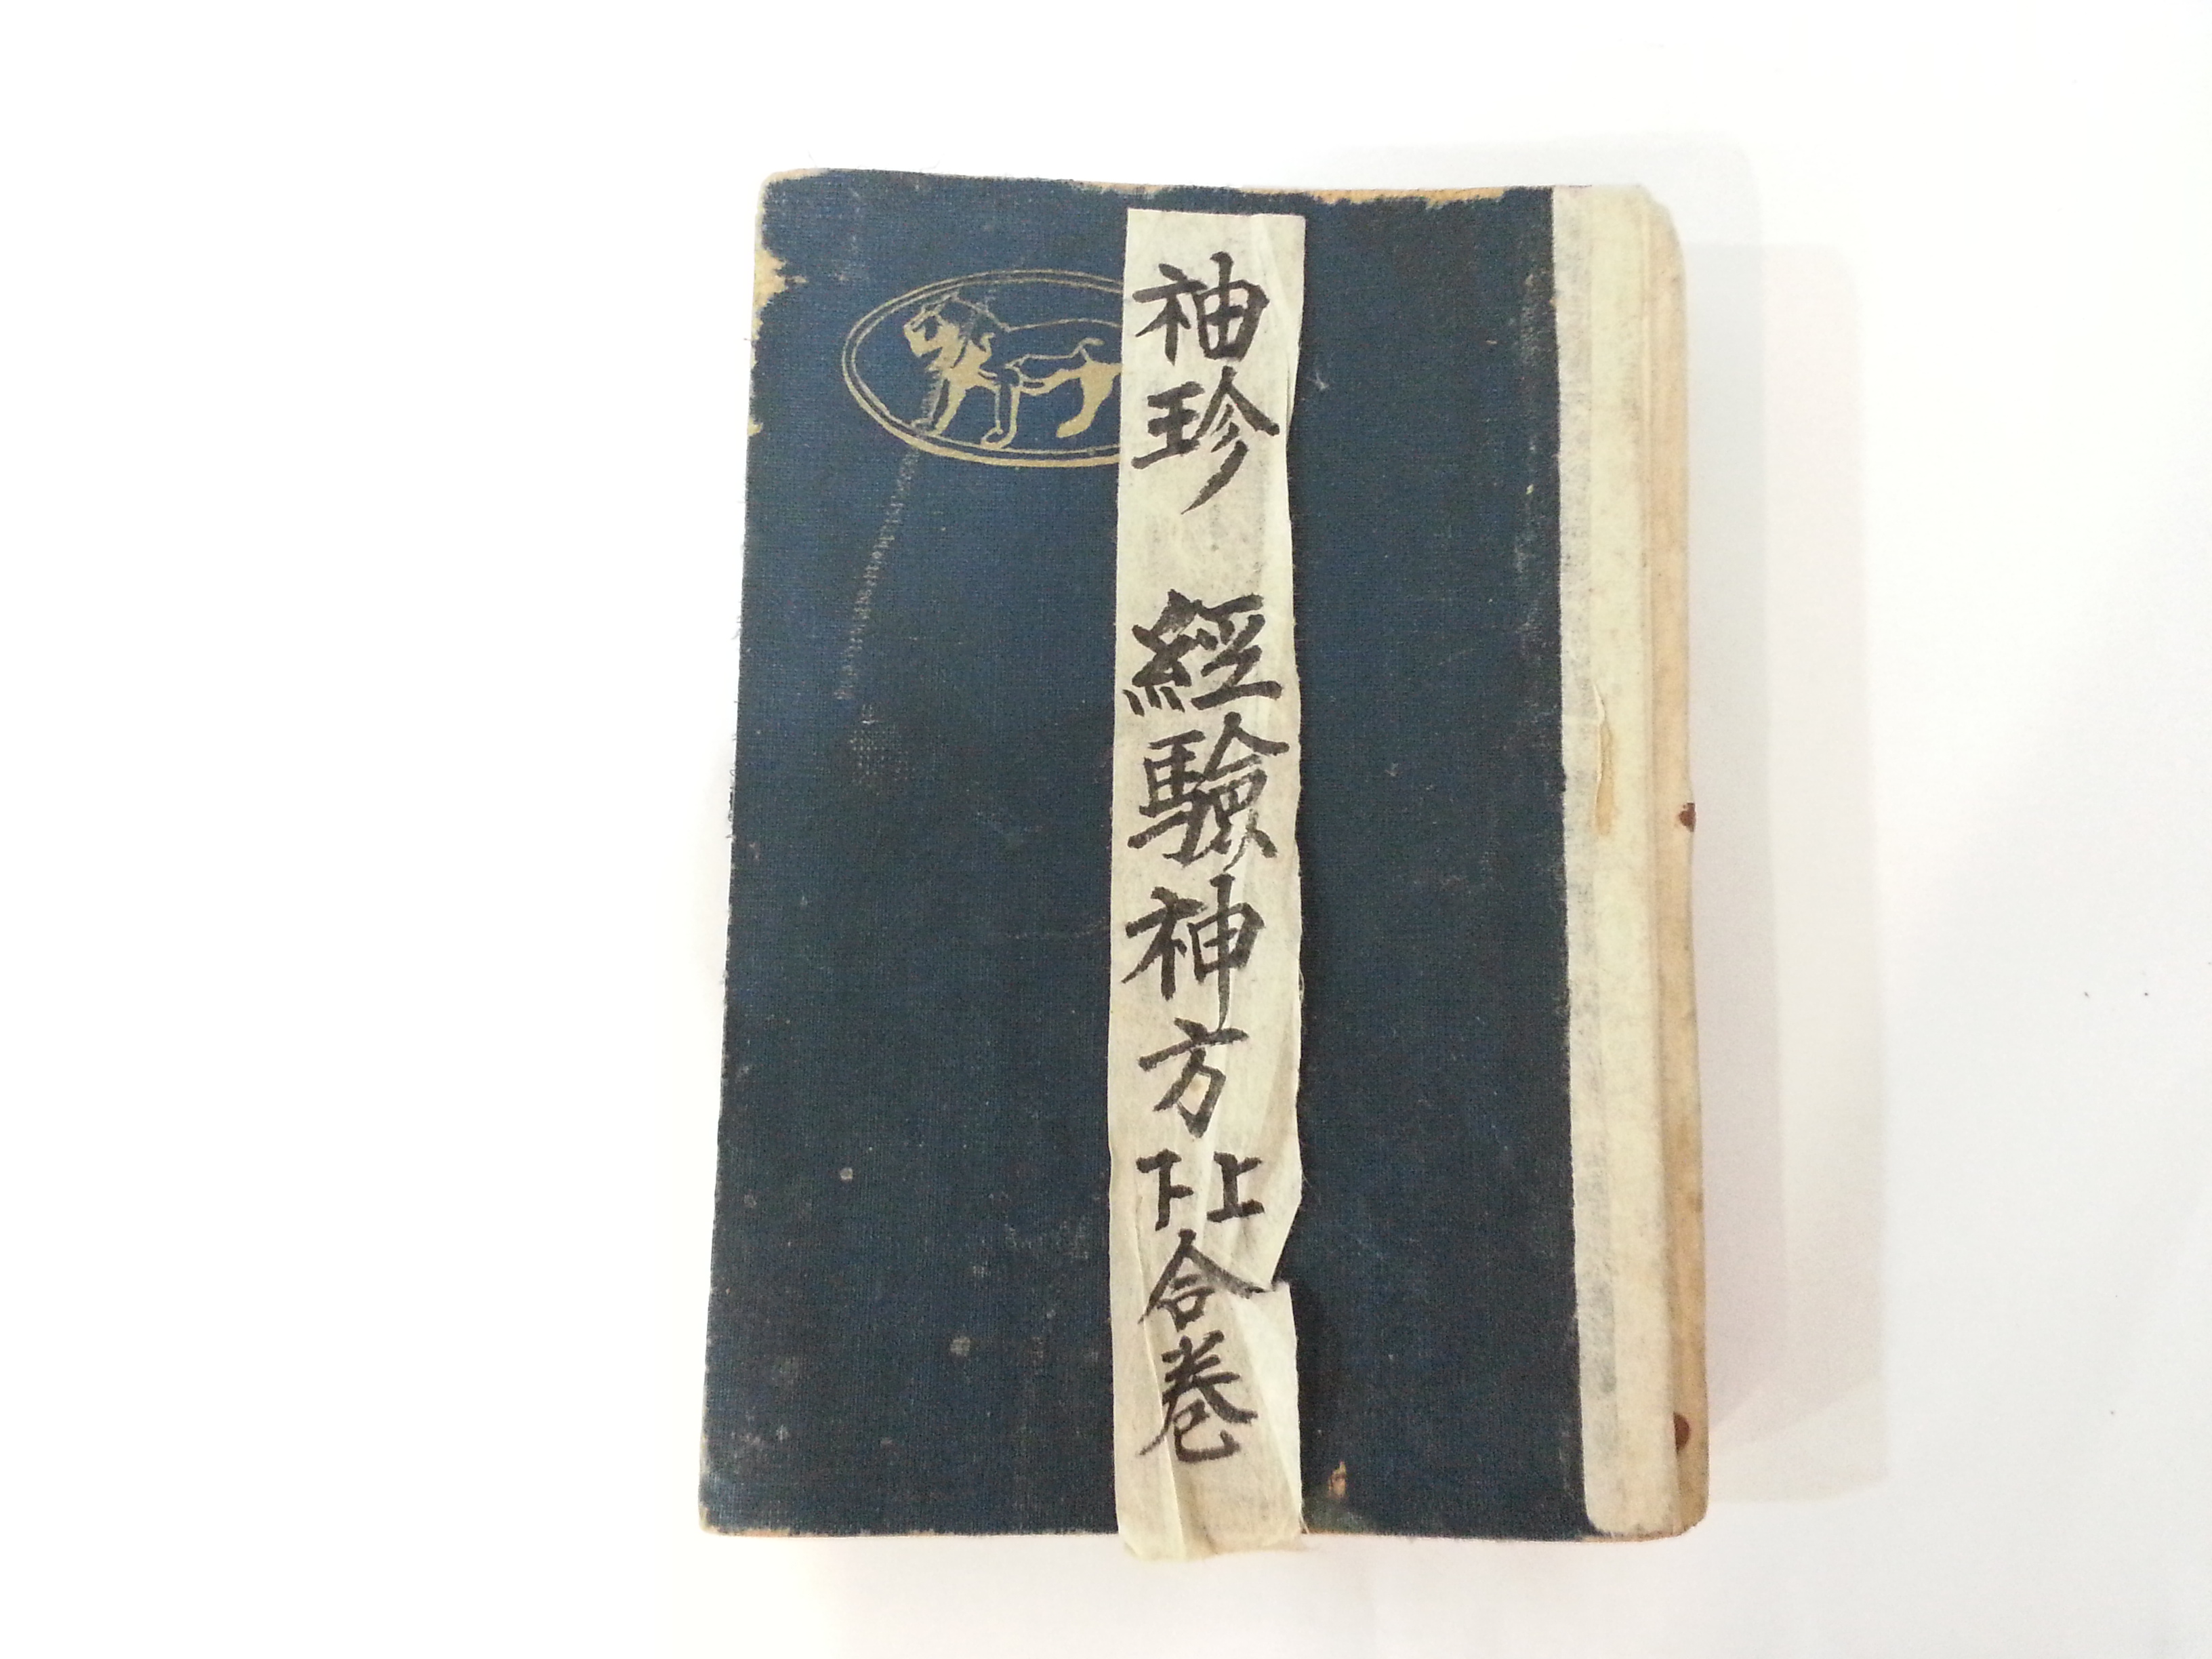 袖珍 經驗神方上下合卷